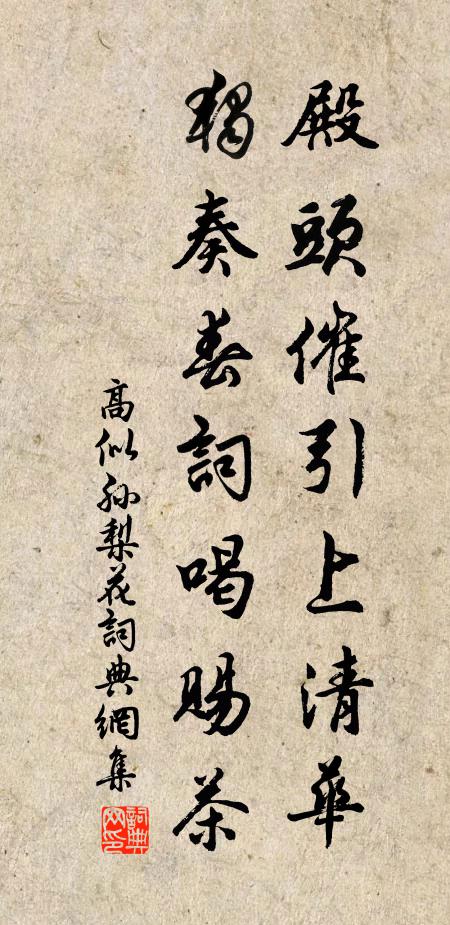 殿頭催引上清華
獨奏春詞喝賜茶
高似孫梨花詞典網集
詞典网印